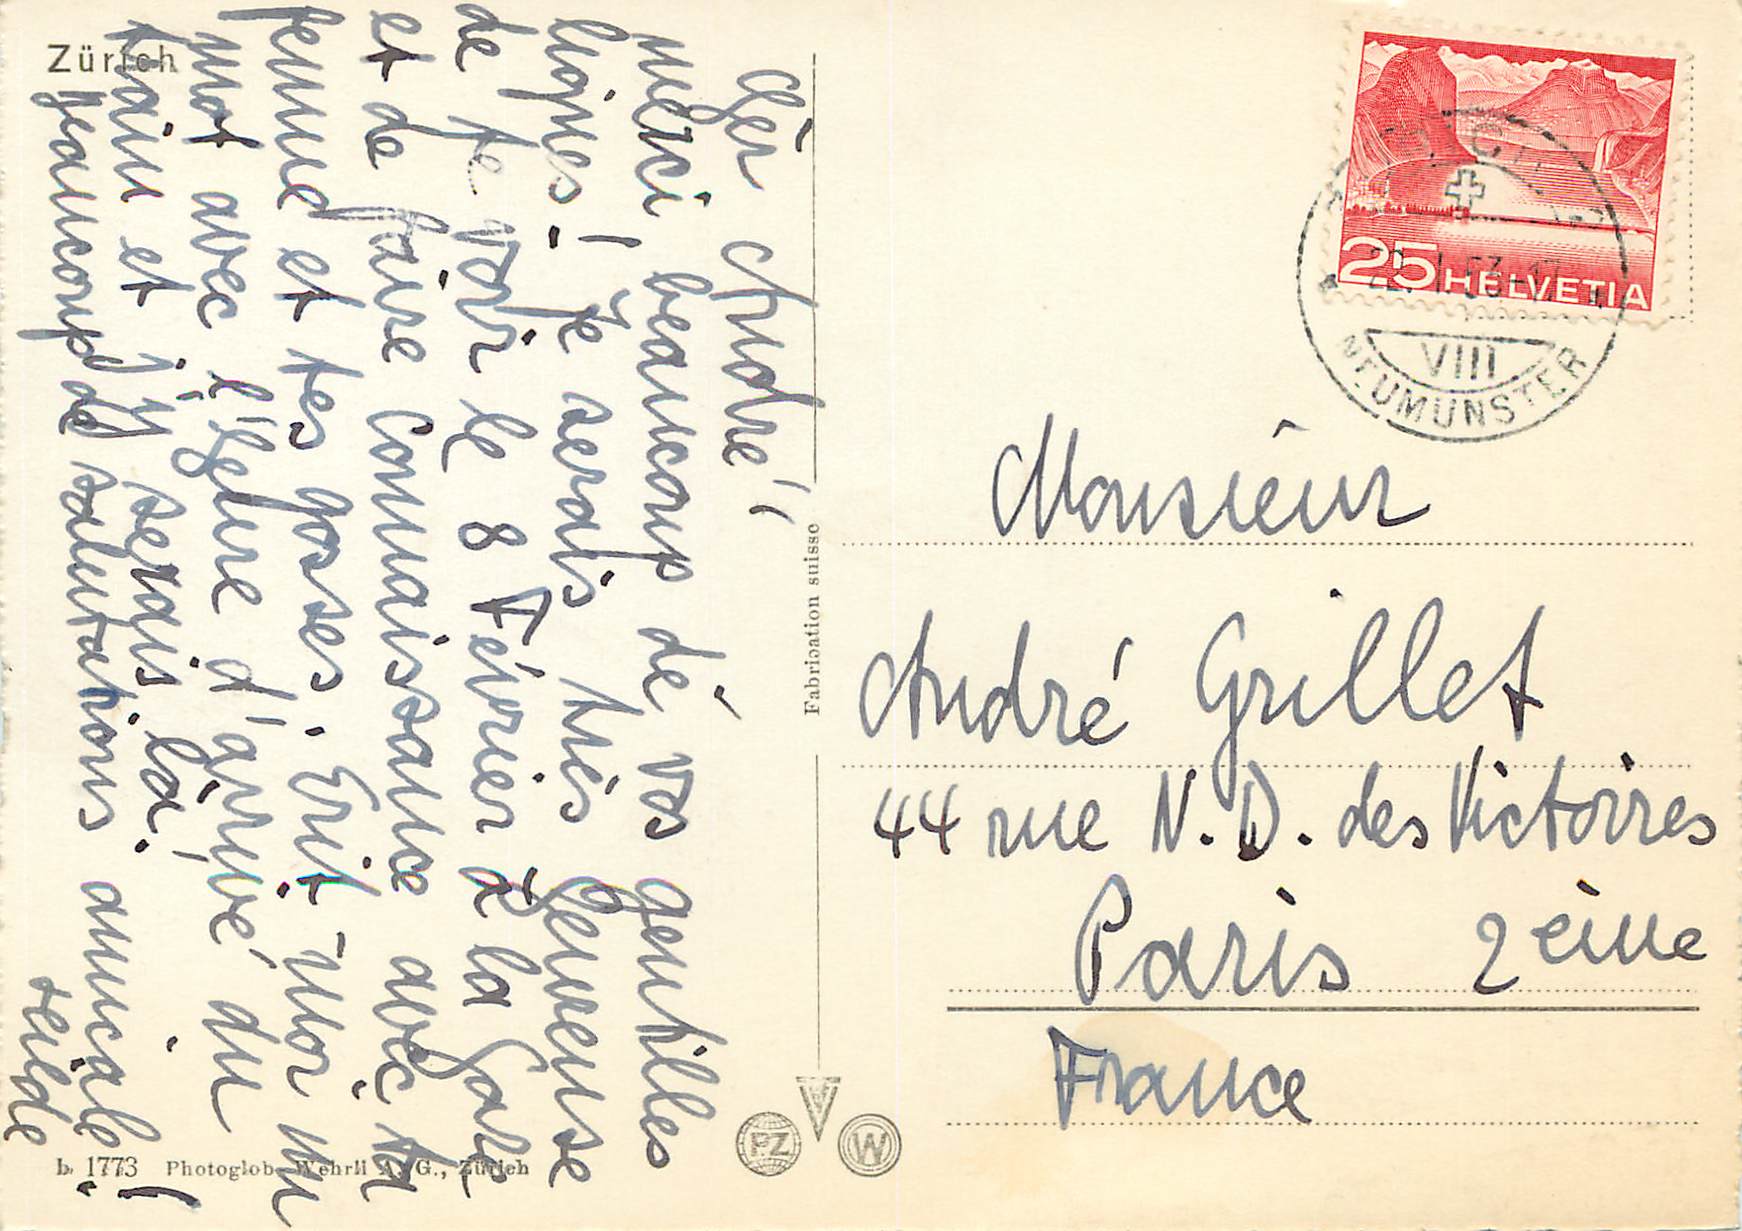 Zürich
Cher André!
merci beaucoup de vos gentilles
lignes! Je serais très heureuse
de te voir le 8 Février à la Gare
et de faire connaissance avec ta
femme et tes gosses. Ecrit-moi un
mot avec l'heure d'arrivé du
train et j'y serais là.
Beaucoup de salutations amicale!
b. 1773 Photoglob-Wehrli A. G., Zürich
Fabrication suisse
PZ
W
25 HELVETIA
VIII
NEUMÜNSTER
Monsieur
André Grillet
44 rue N. D. des Victoires
Paris 2eime
France